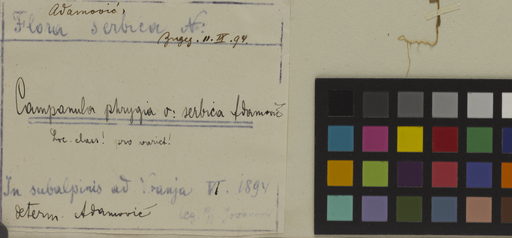 Adamović,
Flora serbica N:
Campanula phrygia v: serbica Adamović
Loc. class! pro variet!
In subalpinis ad Vranja VI. 1894
determ. Adamović
leg.